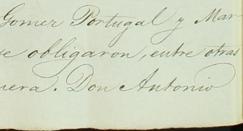 Gomez Portugal y Mar
se obligaron, entre otras
uera. Don Antonio